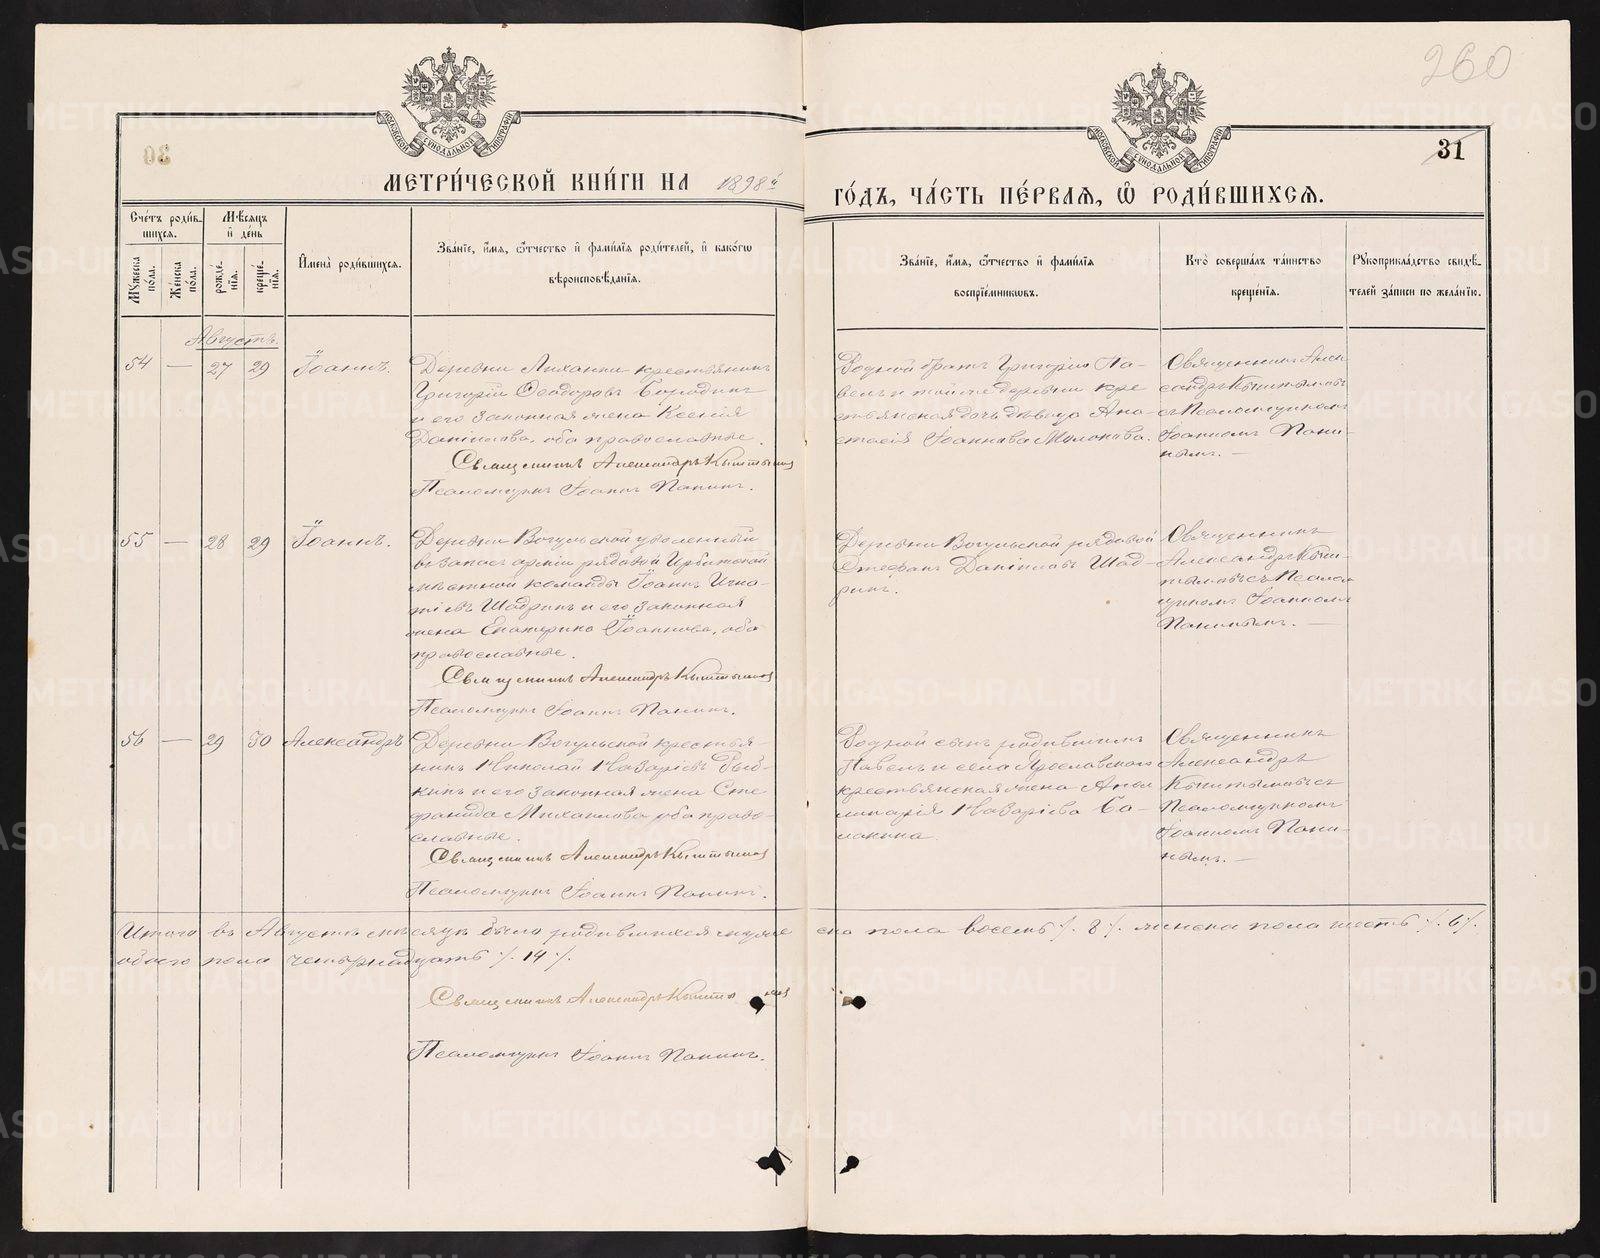 260
31
30
МОСКОВСКОЙ СУНОДАЛЬНОЙ ТИПОГРАФІИ
МОСКОВСКОЙ СУНОДАЛЬНОЙ ТИПОГРАФІИ
МЕТРИ́ЧЕСКОЙ КНИ́ГИ НА 1898й ГО́ДЪ, ЧА́СТЬ ПЕ́РВАЯ, Ѡ РОДИ́ВШИХСЯ.
Сче́тъ роди́в-
шихся.
Мꙋжеска
по́ла.
Же́нска
по́ла.
Мѣ́сяцъ
и҆ де́нь
рожде́-
нїя.
креще́-
нїя.
И҆мена̀ роди́вшихся.
Зва́нїе, и҆́мя, ѻ҆́тчество и҆ фами́лїя роди́телей, и҆ како́гѡ
вѣроисповѣ́данїя.
Зва́нїе, и҆́мя, ѻ҆́тчество и҆ фами́лїя
воспрїе́мникѡвъ.
Кто̀ соверша́лъ та́инство
креще́нїя.
Рꙋкоприкла́дство свидѣ́-
телей за́писи по жела́нїю.
Августъ.
54 — 27 29 Іоаннъ.
Деревни Лихачи крестьянинъ
Григорій Ѳеодоровъ Бородинъ
и его законная жена Ксенія
Даніилова, оба православные.
Священникъ Александръ Кыштымов
Псаломщикъ Іоаннъ Панинъ.
Родной братъ Григорія Па-
велъ и той же деревни кре
стьянская дочь дѣвица Ана
стасія Іоаннова
Священникъ Алек
сандръ Кыштымовъ
съ Псаломщикомъ
Іоанномъ Пани-
нымъ. —
55 — 28 29 Іоаннъ.
Деревни Вогульской уволенный
въ запасъ арміи рядовой Ирбитской
мѣстной команды Іоаннъ Игна-
тіевъ Шадринъ и его законная
жена Екатерина Іоаннова, оба
православные.
Священникъ Александръ Кыштымов
Псаломщикъ Іоаннъ Панинъ.
Деревни Вогульской рядовой
Стефанъ Даніиловъ Шад-
ринъ.
Священникъ
Александръ Кыш-
тымовъ съ Псалом
щикомъ Іоанномъ
Панинымъ. —
56 — 29 30 Александръ
Деревни Вогульской крестья-
нинъ Николай Назаріевъ Рыб-
кинъ и его законная жена Сте
фанида Михаилова оба право-
славные.
Священникъ Александръ Кыштымов
Псаломщикъ Іоаннъ Панинъ.
Родной сынъ родившихъ
Павелъ и села Ярославскаго
крестьянская жена Апол
линарія Назаріева
Священникъ
Александръ
Кыштымовъ съ
Псаломщикомъ
Іоанномъ Пани-
нымъ. —
Итого въ Августѣ мѣсяцѣ было родившихся муже ска пола восемь /. 8 /. женска пола шесть /. 6 /.
обоего пола четырнадцать /. 14 /.
Священникъ Александръ Кыштымов
Псаломщикъ Іоаннъ Панинъ.
METRIKI.GASO-URAL.RU